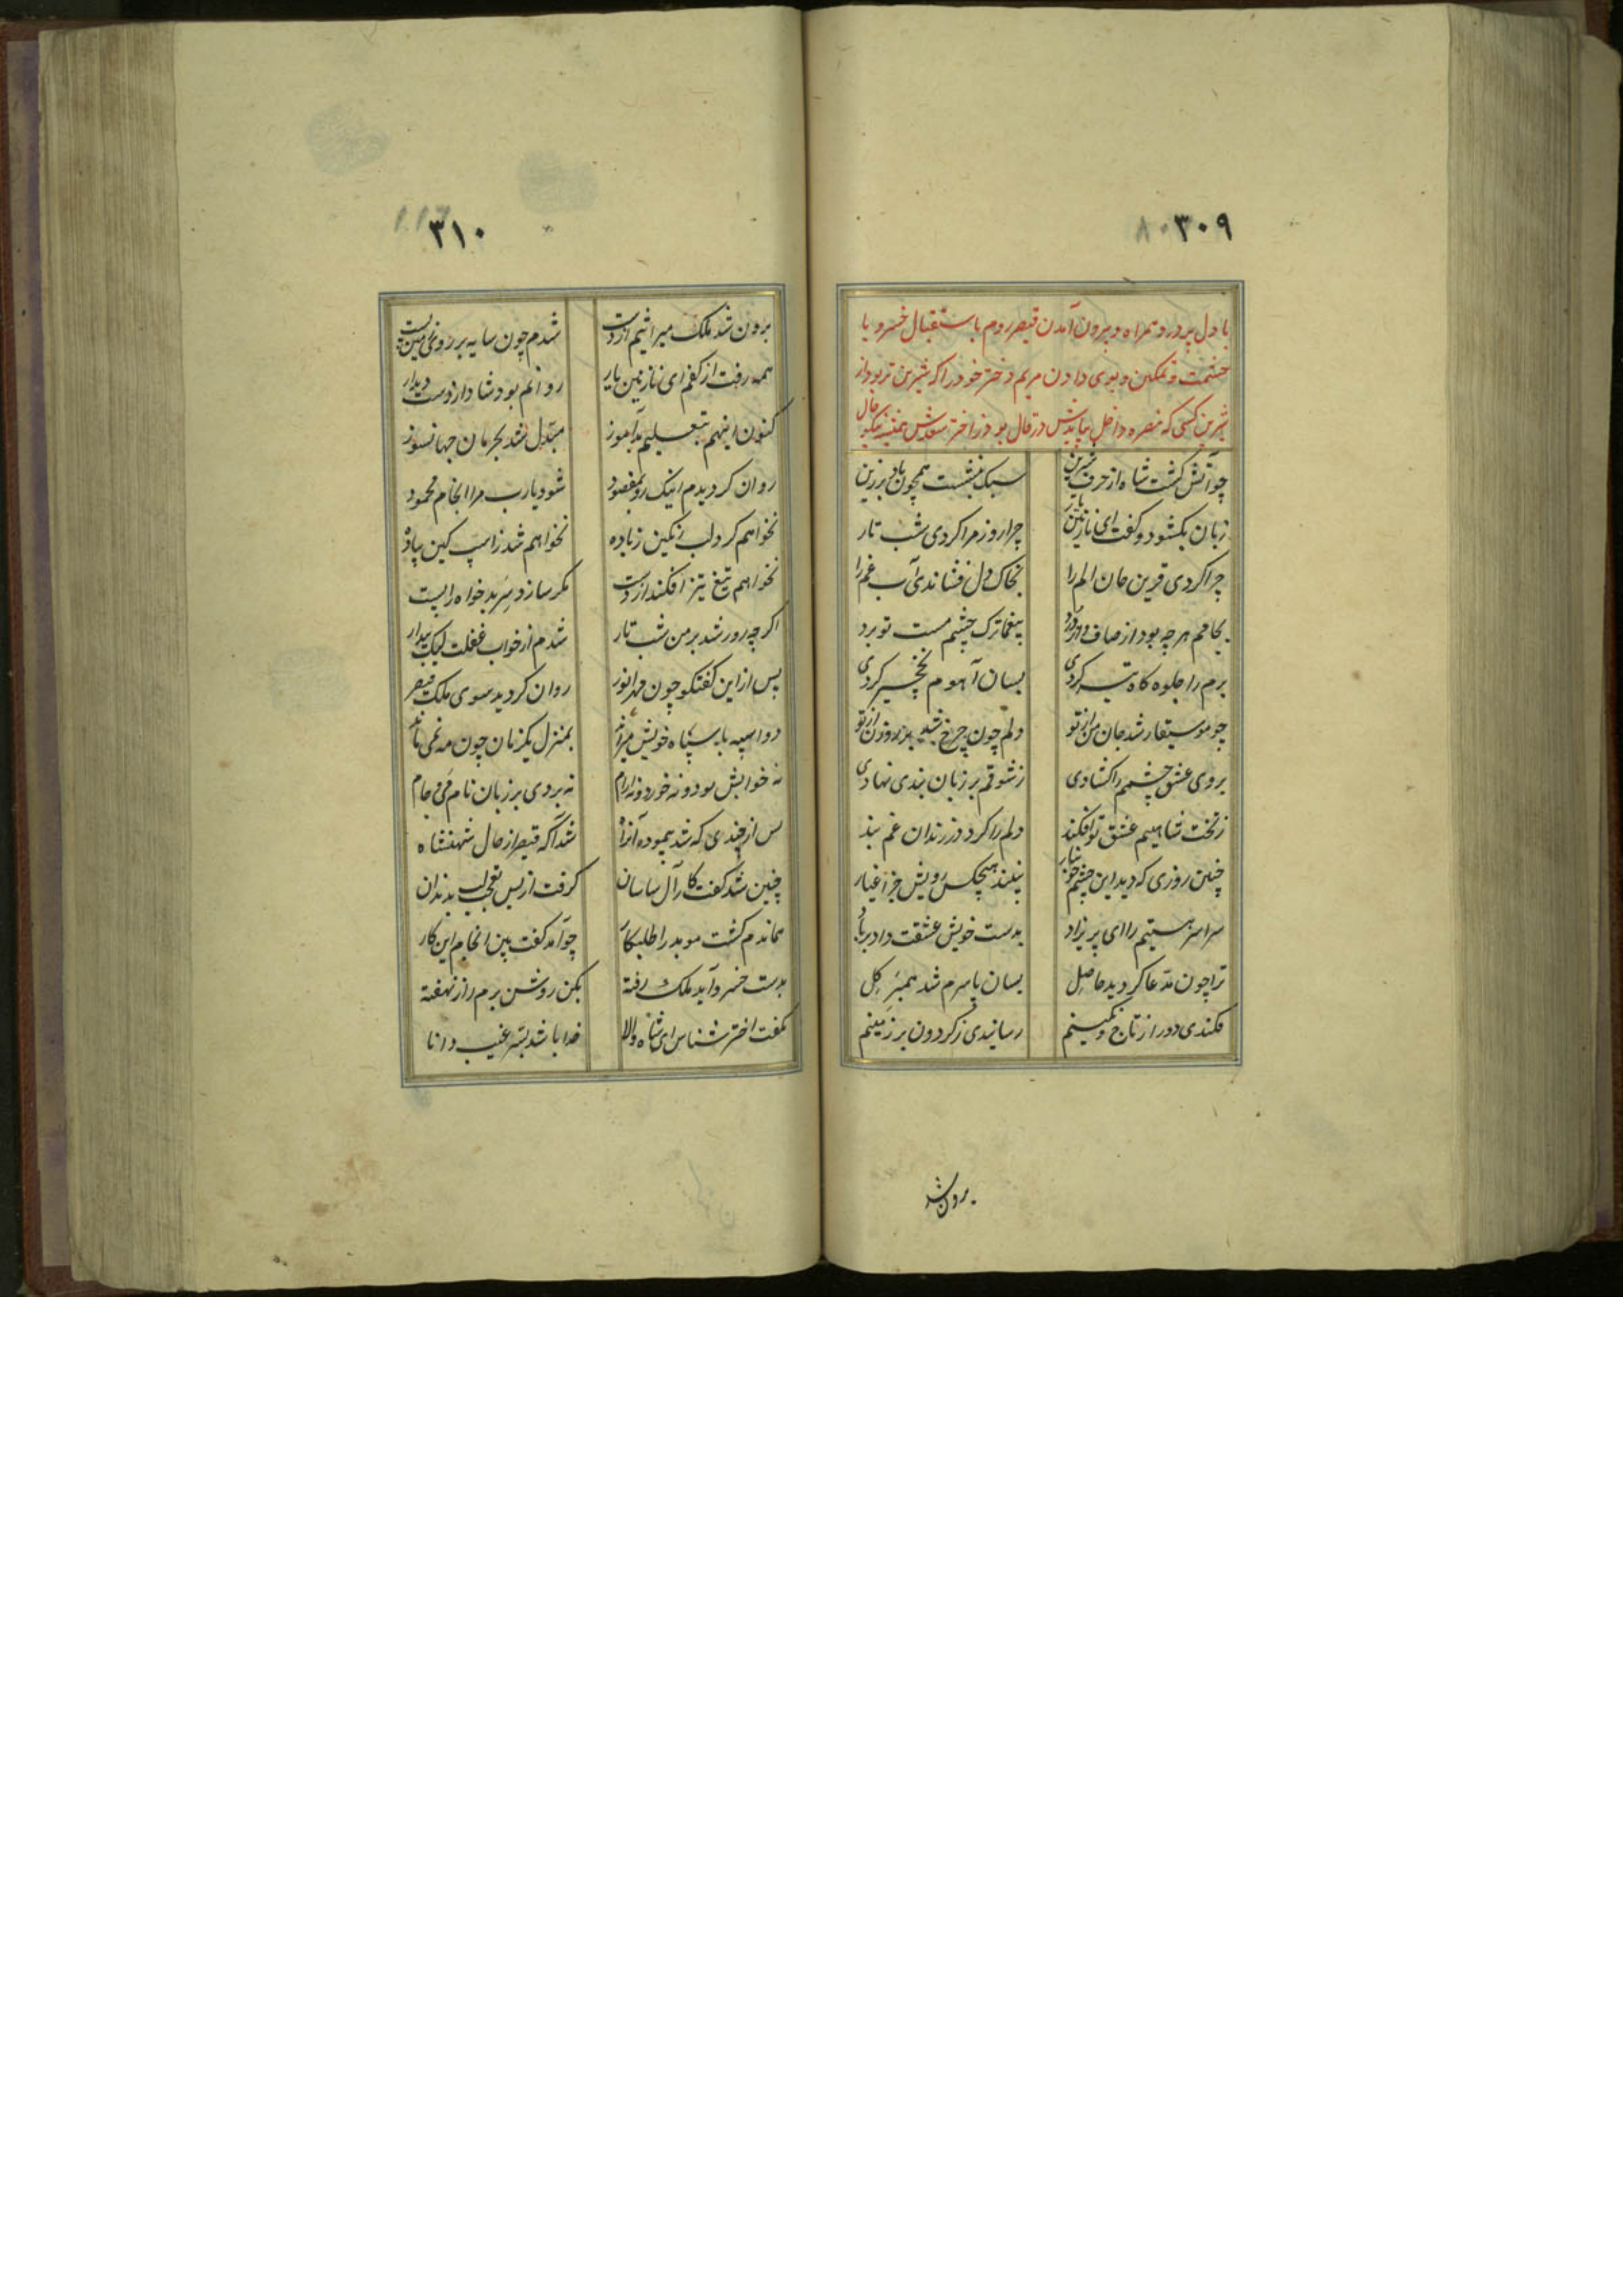 ۳۰۹
با دل پر درد همراه و بیرون آمدن قیصر روم باستقبال خسرو با
حشمت و تمکین و بوی دادن مریم دختر خود را که شیرین تر بود از
شیرین کسی که
چو آتش گشت شاه از حرف شیرین سبک بنشست همچون باد بر زین
زبان بکشود و گفت ای نازنین یار چرا روز مرا کردی شب تار
چرا کردی قرین جان الم را بخاک دل فشاندی آب غم را
بجامم هر چه بود از صاف و از درد بیغما ترک چشم مست تو برد
برم را جلوه گاه تیر کردی بسان آهوم نخچیر کردی
چو موسیقار شد جان من از تو دلم چون چرخ شد از تو
بروی عشق چشمم را گشادی ز شوقم بر زبان بندی نهادی
ز تخت شاهیم عشق تو افکند دلم را کرد در زندان غم بند
چنین روزی که دید این چشم خونبار نبیند هیچکس رویش جز اغیار
سراسر هستیم را ای پریزاد بدست خویش عشقت داد بر باد
ترا چون مدعا گردید حاصل بسان پا سرم شد همبر گل
فکندی دور از تاج و نگینم رسانیدی ز گردون بر زمینم
برون شد
۳۱۰
برون شد ملک میراثیم از دست شدم چون سایه بر روی زمین پست
همه رفت از کفم ای نازنین یار روانم بود شاد از دوست دیدار
کنون اینهم بتعلیم بدآموز مبدل شد بحرمان جهانسوز
روان گردیدم اینک رو بمقصود شود یارب مرا انجام محمود
نخواهم کرد لب رنگین ز باده نخواهم شد ز اسپ کین پیاده
نخواهم تیغ تیز افکند از دست مگر سازد سر بدخواه را پست
اگر چه روز شد بر من شب تار شدم از خواب غفلت لیک بیدار
پس از این گفتگو چون مهر انور روان گردید سوی ملک قیصر
دو اسپه با سپاه خویش میراند بمنزل یکزمان چون مه نمی ماند
نه خوابش بود و نه خورد و نه آرام نه بردی بر زبان نام می و جام
پس از چندی که شد پیموده آنراه شد آگه قیصر از حال شهنشاه
چنین شد گفت کار آل ساسان گرفت از بس تعجب لب بدندان
هماندم گشت موبد را طلبکار چو آمد گفت بین انجام این کار
بدست خسرو آید ملک رفته بکن روشن برم راز نهفته
بگفت اختر شناس ای شاه والا خدا باشد بسر غیب دانا